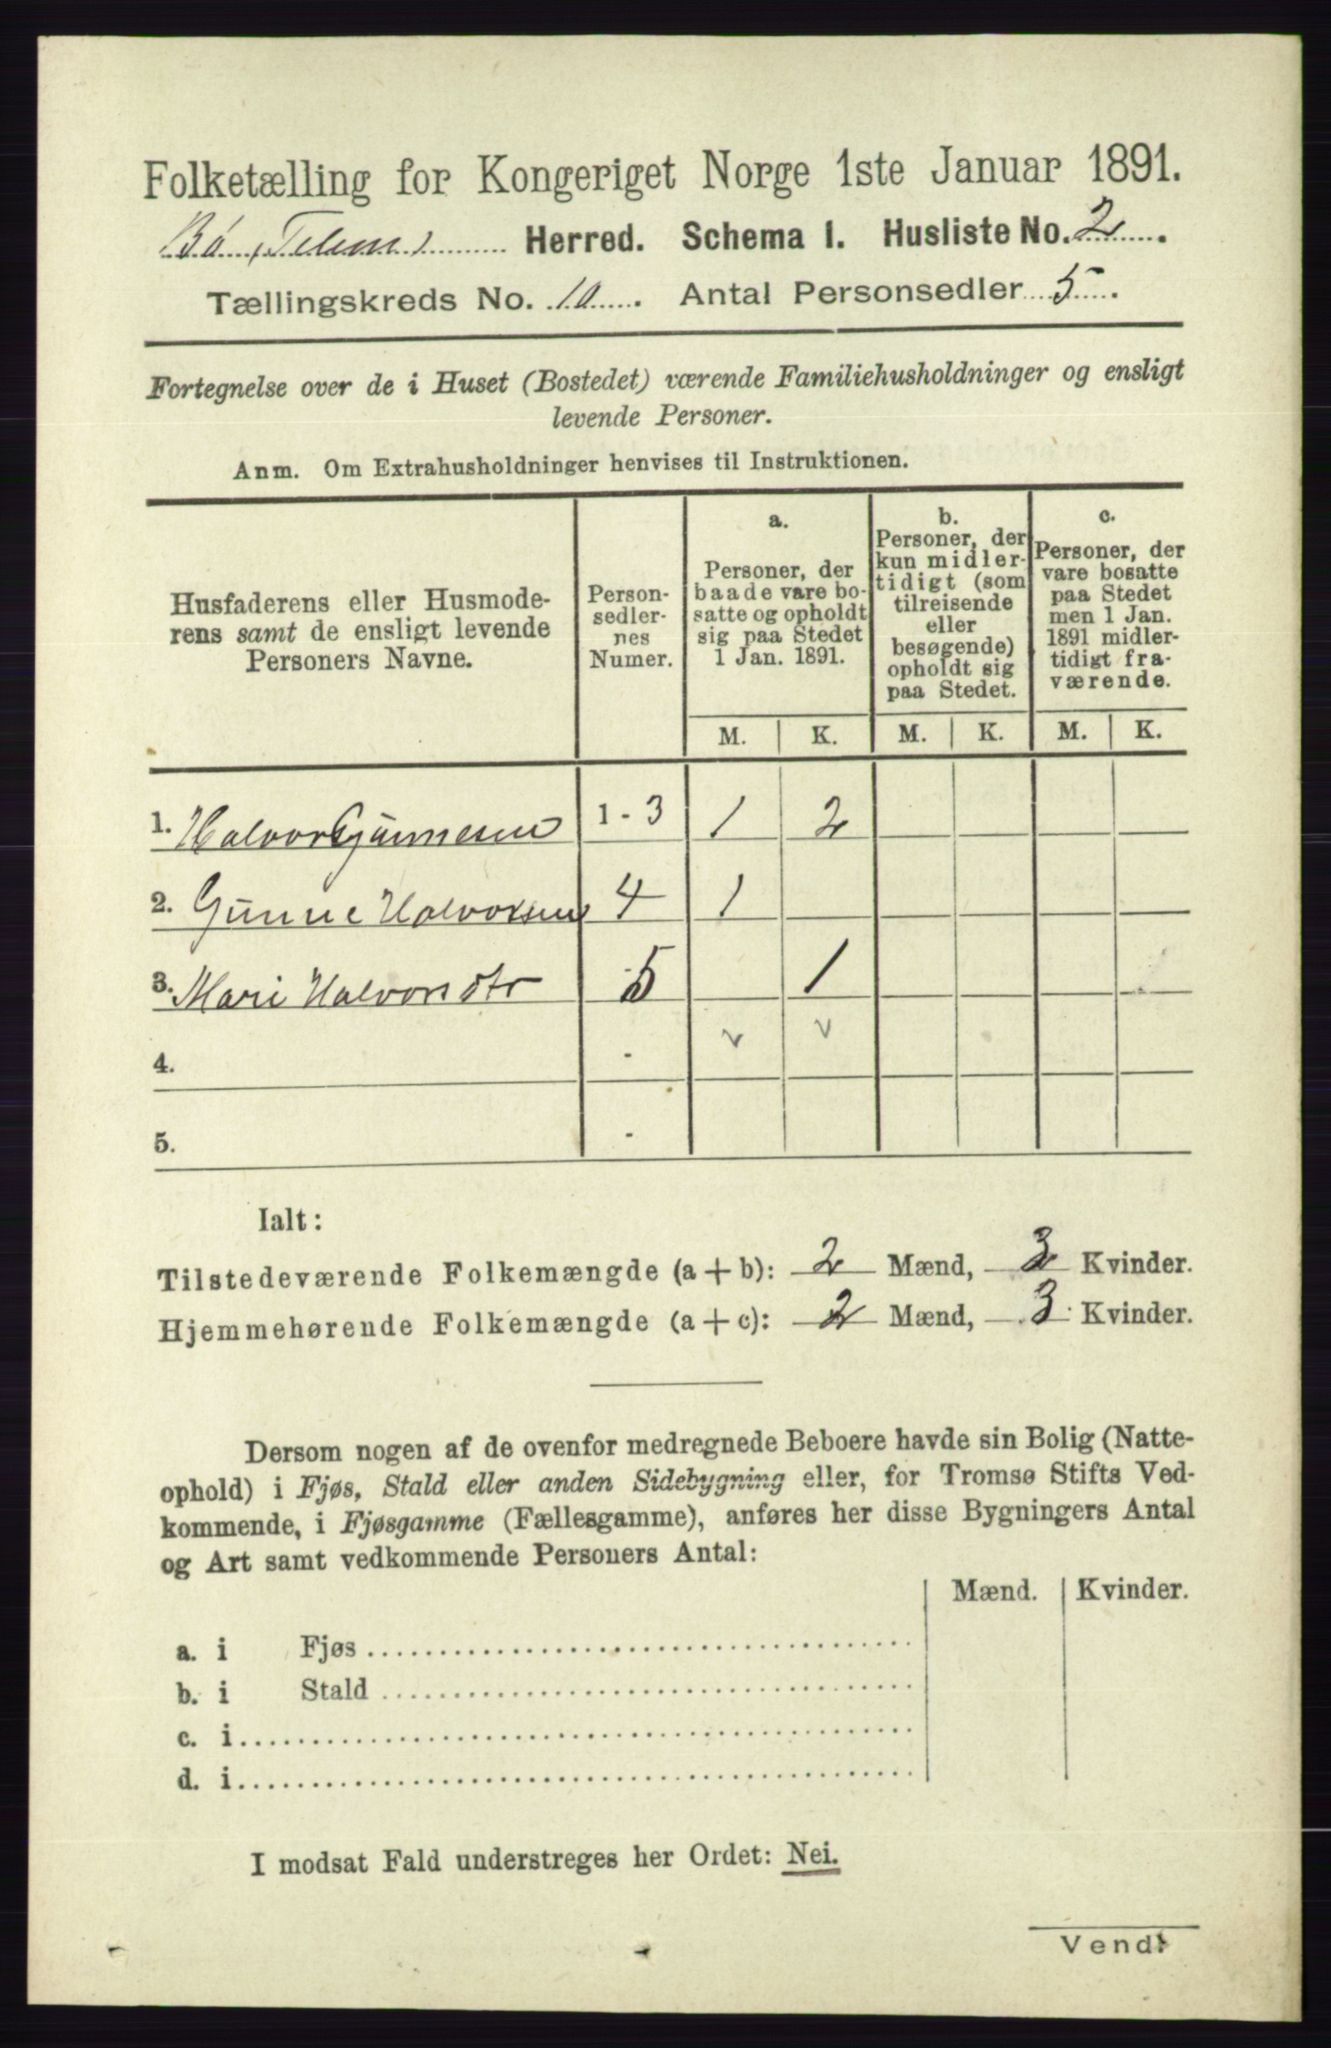 Folketælling for Kongeriget Norge 1ste Januar 1891.
Bø (Telem.) Herred. Schema I. Husliste No. 2.
Tællingskreds No. 10. Antal Personsedler 5.
Fortegnelse over de i Huset (Bostedet) værende Familiehusholdninger og ensligt
levende Personer.
Anm. Om Extrahusholdninger henvises til Instruktionen.
Husfaderens eller Husmode-
rens samt de ensligt levende
Personers Navne.
Person-
sedler-
nes
Numer.
a.
Personer, der
baade vare bo-
satte og opholdt
sig paa Stedet
1 Jan. 1891.
b.
Personer, der
kun midler-
tidigt (som
tilreisende
eller
besøgende)
opholdt sig
paa Stedet.
c.
Personer, der
vare bosatte
paa Stedet
men 1 Jan.
1891 midler-
tidigt fra-
værende.
M. K. M. K. M. K.
1. Halvor Gunnesen 1 - 3 1 2
2. Gunne Halvorsen 4 1
3. Mari Halvorsdtr 5 1
4. -
5. -
Ialt:
Tilstedeværende Folkemængde (a + b): 2 Mænd, 3 Kvinder.
Hjemmehørende Folkemængde (a + c): 2 Mænd, 3 Kvinder.
Dersom nogen af de ovenfor medregnede Beboere havde sin Bolig (Natte-
ophold) i Fjøs, Stald eller anden Sidebygning eller, for Tromsø Stifts Ved-
kommende, i Fjøsgamme (Fællesgamme), anføres her disse Bygningers Antal
og Art samt vedkommende Personers Antal:
Mænd. Kvinder.
a. i Fjøs
b. i Stald
c. i
d. i
I modsat Fald understreges her Ordet: Nei.
Vend!